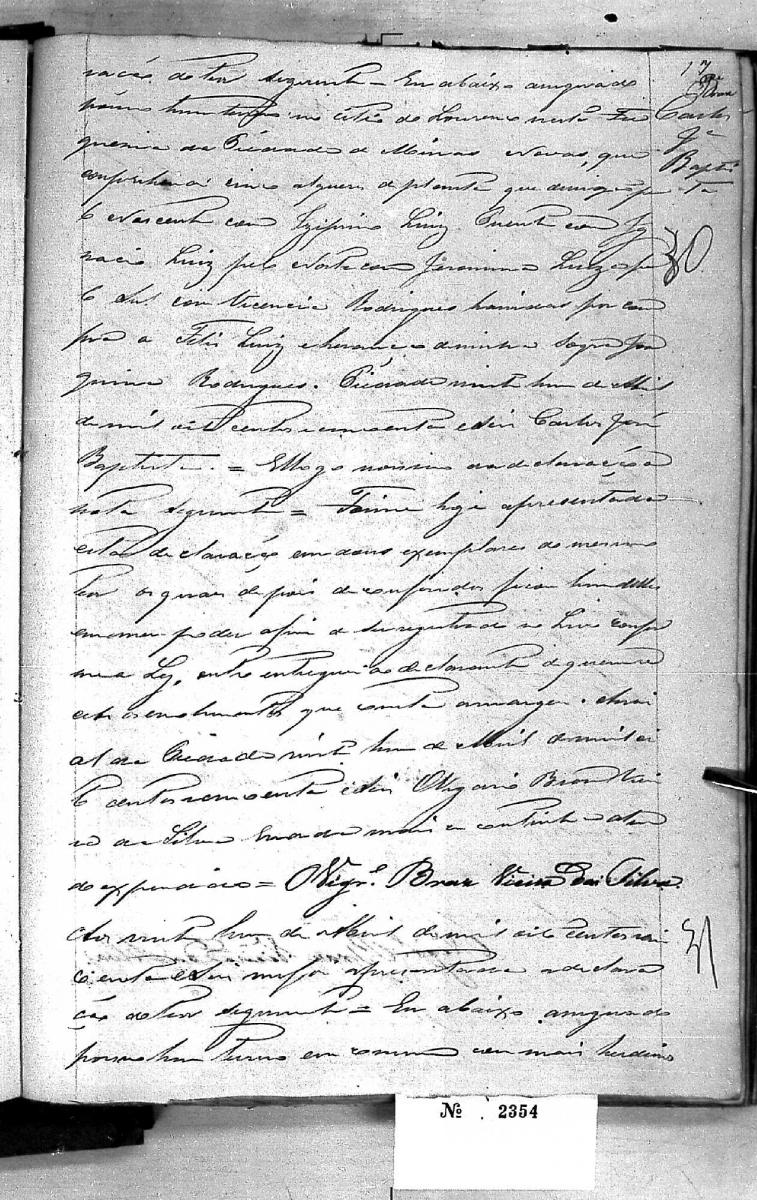 17
ração do teor seguinte = Eu abaixo assignado
possuo hum terreno no citio do Lourenço nesta Fre
guesia da Piedade de Minas Novas, que
comportará cinco alqueres de planta que demarca pe
lo Nascente com Luiz Poente com Ig
nacio Luiz pelo Norte com Jeronimo Luiz e pe
lo Sul com Vicencia Rodrigues havidas por com
pra a Felis Luiz e herança de minha Sogra Joa
quina Rodrigues. Piedade vinte hum de Abril
de mil oito centos e cincoenta e seis Carlos José
Baptista. = E logo na declaração a
nota seguinte = Foi me hoje apresentada
esta declaração em dous exemplares do mesmo
teor os quaes depois de conferidos ficou hum delles
em meu poder afim de ser registrado no Livro confor
me a Ley, outro entreguei ao declarante de quem re
cebi os emolumentos que consta a margem. Arrai
al da Piedade vinte hum de Abril de mil oi
to centos e cincoenta e seis O Vigario Braz Viei
ra da Silva E nada mais se continha
= O Vigr.º Braz Vieira da Silva.
Aos vinte hum de Abril de mil oito centos e cin
coenta e seis me foi apresentada a declara
ção do teor seguinte = Eu abaixo assignado
possuo hum terreno em comum com mais herdeiros
Carlos
Jé
Baptis
ta
30
31
Nº 2354